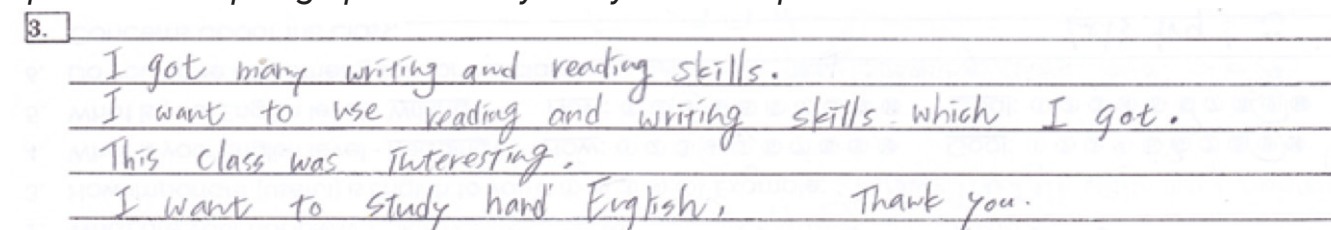 3.
I got many writing and reading skills.
I want to use reading and writing skills which I got.
This class was interesting.
I want to study hard English. Thank you.